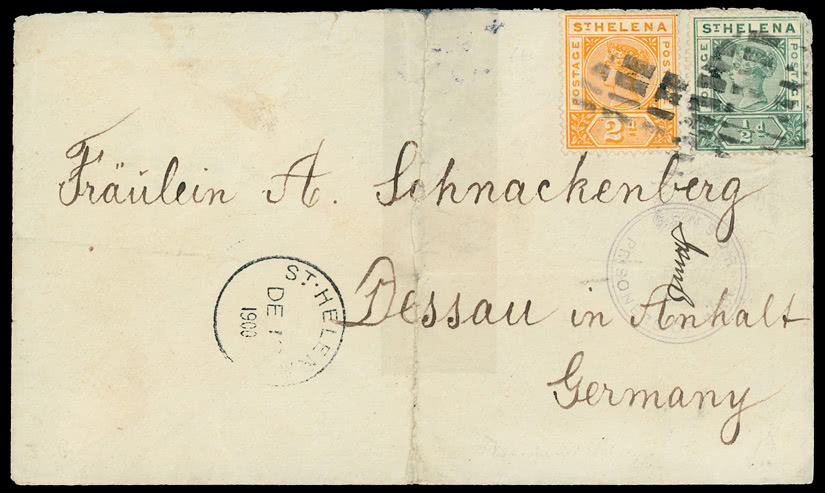 ST HELENA
POSTAGE
2½d
ST HELENA
POSTAGE
½d
Fräulein A. Schnackenberg
Dessau in Anhalt
Germany
ST. HELENA
DE
1900